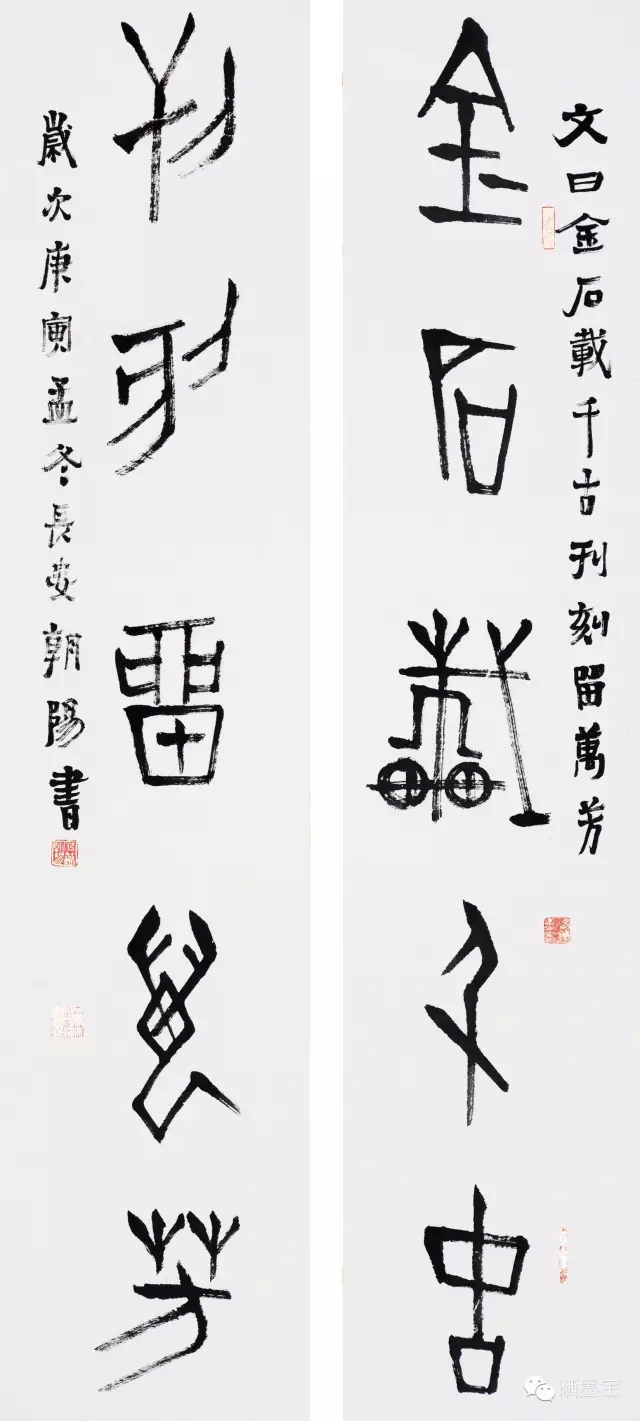 文曰金石載千古刊刻留萬芳
金石載千古
刊刻留萬芳
歲次庚寅孟冬長安朝陽書
晒墨宝